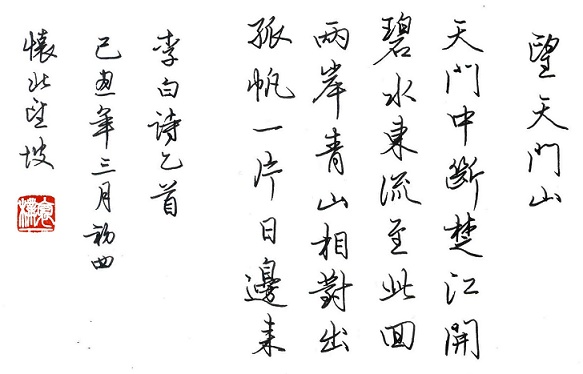 望天門山
天門中斷楚江開
碧水東流至此回
兩岸青山相對出
孤帆一片日邊來
李白詩乙首
己丑年三月初四
懷北望坡